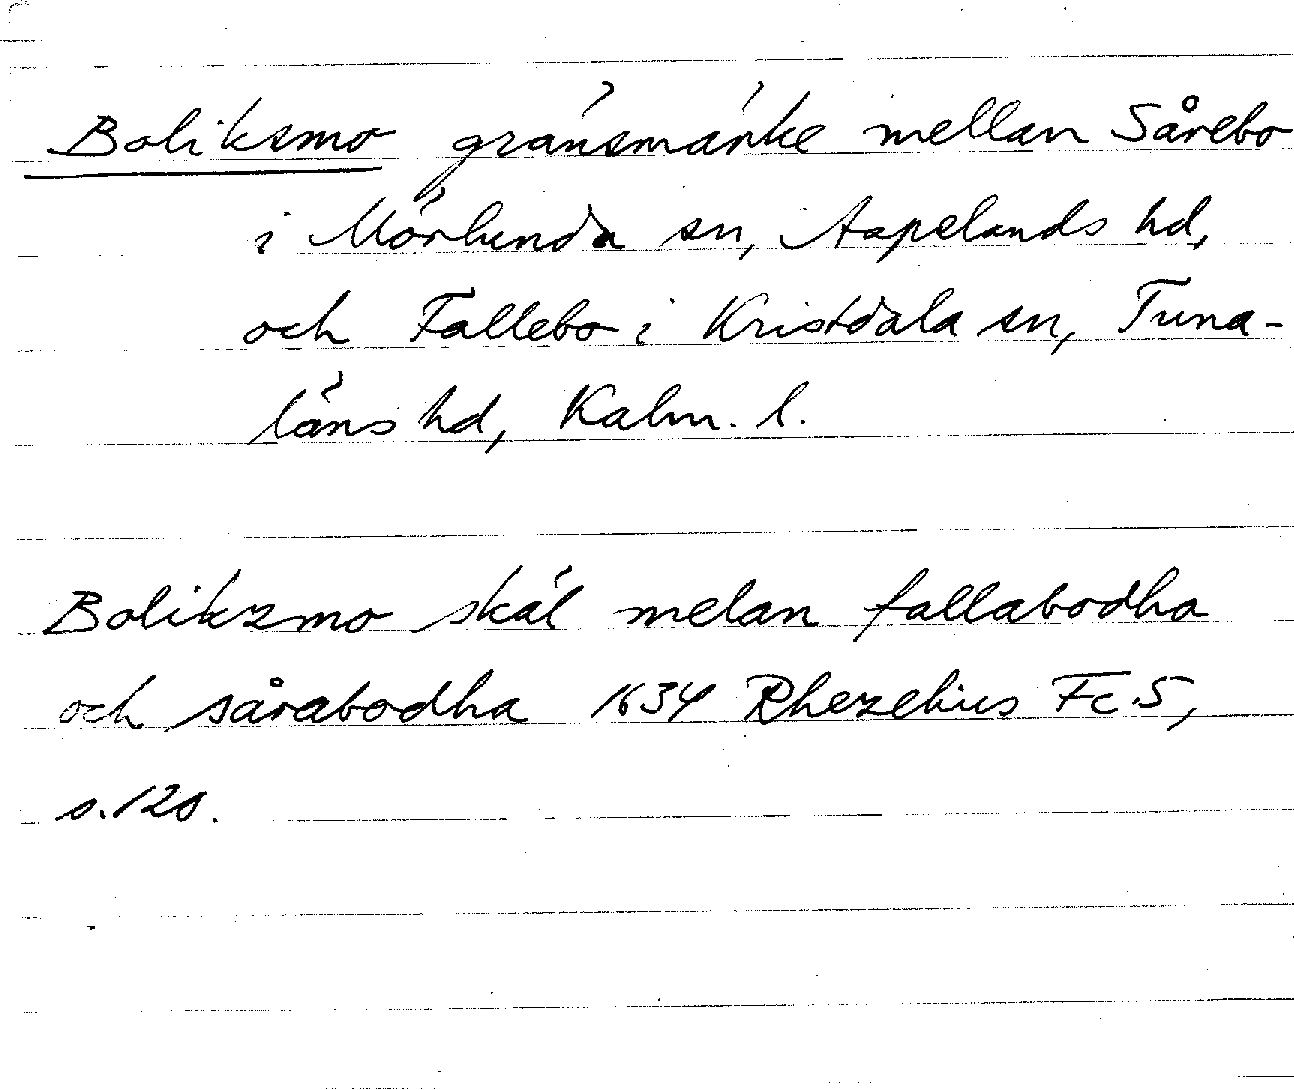 Boliksmo gränsmärke mellan Sårebo
i Mörlunda sn, Aspelands hd,
och Fallebo i Kristdala sn, Tuna-
läns hd, Kalm. l.
Bolikzmo skäl melan fallabodha
och sårabodha 1634 Rhezelius Fc5,
s. 120.